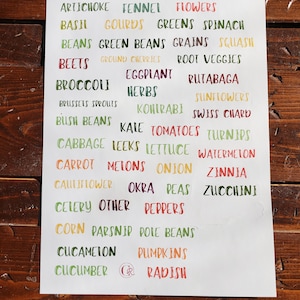 ARTICHOKE FENNEL FLOWERS
BASIL GOURDS GREENS SPINACH
BEANS GREEN BEANS GRAINS SQUASH
BEETS GROUND CHERRIES ROOT VEGGIES
EGGPLANT RUTABAGA
BROCCOLI HERBS
BRUSSELS SPROUTS SUNFLOWERS
KOHLRABI SWISS CHARD
BUSH BEANS
KALE TOMATOES TURNIPS
CABBAGE LEEKS LETTUCE WATERMELON
CARROT MELONS ONION ZINNIA
CAULIFLOWER OKRA PEAS ZUCCHINI
CELERY OTHER PEPPERS
CORN PARSNIP POLE BEANS
CUCAMELON PUMPKINS
CUCUMBER RADISH